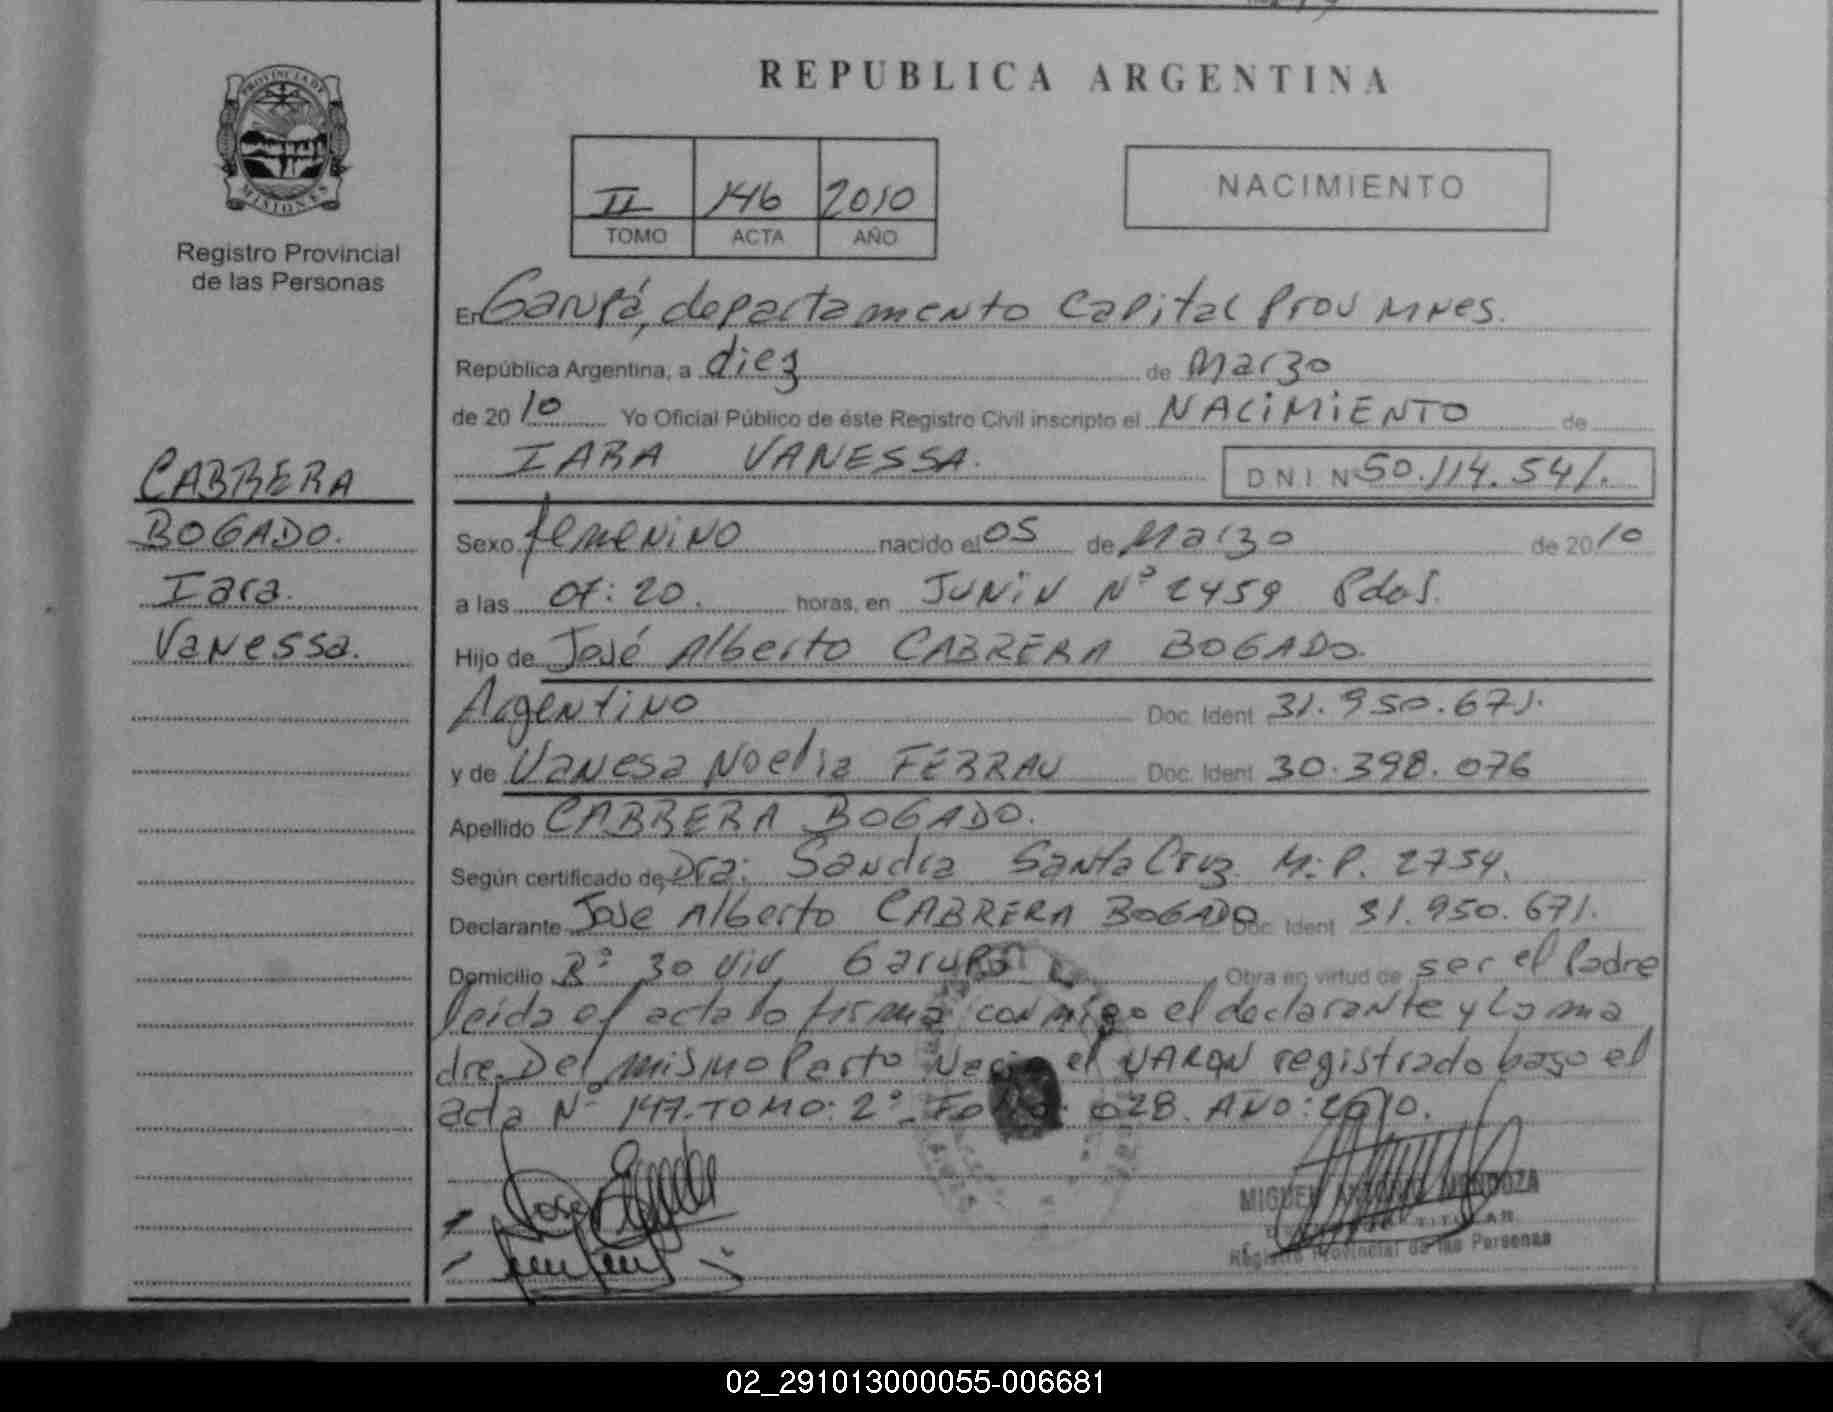 REPUBLICA ARGENTINA
PROVINCIA DE
MISIONES
Registro Provincial
de las Personas
II 146 2010
TOMO ACTA AÑO
NACIMIENTO
En Garupá, departamento Capital Prov Mnes.
República Argentina, a diez de Marzo
de 2010 Yo Oficial Público de éste Registro Civil inscripto el NACIMIENTO de
IARA VANESSA. DNI Nº 50.114.541.
CABRERA
BOGADO.
Iara.
Vanessa.
Sexo femenino nacido el 05 de Marzo de 2010
a las 07:20. horas, en JUNIN Nº 2459 Pdas.
Hijo de José Alberto CABRERA BOGADO.
Argentino Doc. Ident 31.950.671.
y de Vanesa Noelia FERRAU Doc. Ident 30.398.076
Apellido CABRERA BOGADO.
Según certificado de Dra: Sandra Santa Cruz M.P. 2754.
Declarante Jose Alberto CABRERA BOGADO Doc. Ident 31.950.671.
Domicilio Bº 30 Viv. Garupá Obra en virtud de ser el Padre
leida el acta lo firma conmigo el declarante y la ma
dre. Del mismo Parto Nacio el VARON registrado bajo el
acta Nº 147. TOMO: 2º. Folio: 028. AÑO: 2010.
MIGUEL MENDOZA
TITULAR
Registro Provincial de las Personas
02_291013000055-006681